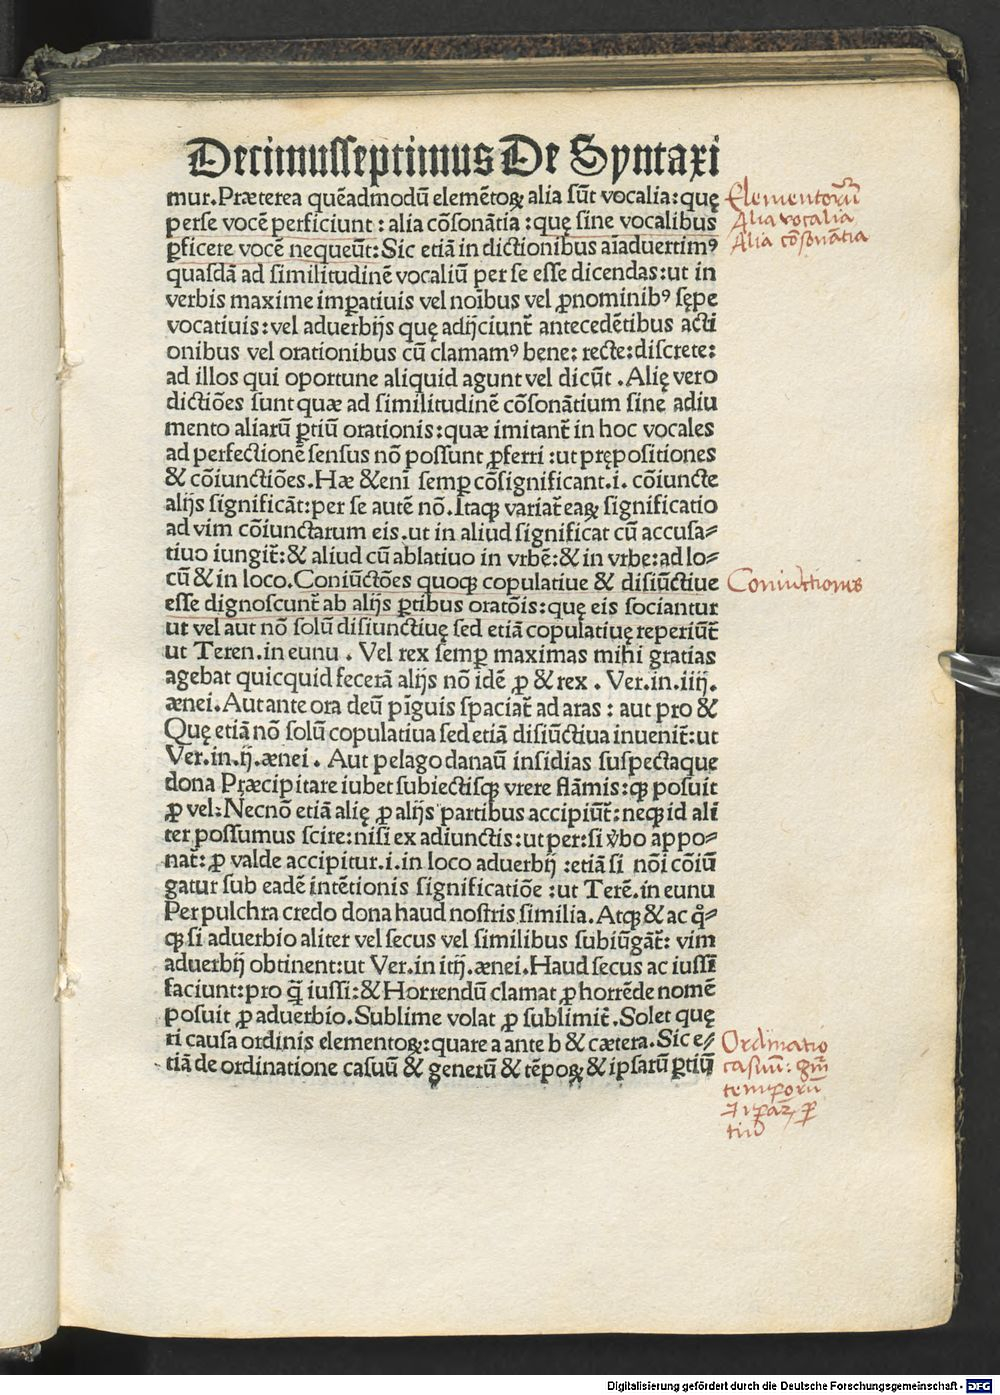 Decimusseptimus De Syntaxi
mur. Præterea quēadmodū elemētoꝝ alia sūt vocalia: quę
perse vocē perficiunt : alia cōsonātia : quę sine vocalibus
ꝑficere vocē nequeūt: Sic etiā in dictionibus aiaduertimꝰ
quasdā ad similitudinē vocaliū per se esse dicendas: ut in
verbis maxime imꝑatiuis vel noībus vel ꝓnominibꝰ sępe
vocatiuis: vel aduerbijs quę adijciunt̄ antecedētibus acti
onibus vel orationibus cū clamamꝰ bene: recte: discrete:
ad illos qui oportune aliquid agunt vel dicūt . Alię vero
dictiões sunt quæ ad similitudinē cōsonātium sine adiu
mento aliarū ꝑtiū orationis: quæ imitant̄ in hoc vocales
ad perfectionē sensus nō possunt ꝓferri : ut prępositiones
& cōiunctiões. Hæ &enī semꝑ cōsignificant .i. cōiuncte
alijs significāt: per se autē nō. Itaqꝫ variat̄ eaꝝ significatio
ad vim cōiunctarum eis. ut in aliud significat cū accusa⸗
tiuo iungit̄: & aliud cū ablatiuo in vrbē: & in vrbe: ad lo⸗
cū & in loco. Coniūctōes quoqꝫ copulatiue & disiūctiue
esse dignoscunt̄ ab alijs ꝑtibus oratōis: quę eis sociantur
ut vel aut nō solū disiunctiuę sed etiā copulatiuę reperiūt̄
ut Teren. in eunu . Vel rex semꝑ maximas mihi gratias
agebat quicquid fecerā alijs nō idē ꝓ & rex . Ver. in. iiij.
ænei. Aut ante ora deū pīguis spaciat̄ ad aras : aut pro &
Quę etiā nō solū copulatiua sed etiā disiūctiua inuenit̄: ut
Ver. in. ij. ænei . Aut pelago danaū insidias suspectaque
dona Præcipitare iubet subiectisqꝫ vrere flāmis: qꝫ posuit
ꝓ vel: Necnō etiā alię ꝓ alijs partibus accipiūt̄: neqꝫ id ali
ter possumus scire: nisi ex adiunctis: ut per: si v̄bo appo⸗
nat̄: ꝓ valde accipitur .i. in loco aduerbij : etiā si nōi cōiū
gatur sub eadē intētionis significatiōe : ut Terē. in eunu
Per pulchra credo dona haud nostris similia. Atqꝫ & ac qͦ⸗
qꝫ si aduerbio aliter vel secus vel similibus subiūgāt̄: vim
aduerbij obtinent: ut Ver. in iiij. ænei. Haud secus ac iussī
faciunt: pro q̄ iussi: & Horrendū clamat ꝓ horrēde nomē
posuit ꝓ aduerbio. Sublime volat ꝓ sublimit̄. Solet quę
ri causa ordinis elementoꝝ: quare a ante b & cætera. Sic e⸗
tiā de ordinatione casuū & generū & tēpoꝝ & ipsarū ꝑtiū
Elementorū
Alia vocalia
Alia cōsonātia
Coniūctiones
Ordinatio
casuū: gn̄m
temporū
ꝑ
tiū
Digitalisierung gefördert durch die Deutsche Forschungsgemeinschaft - DFG